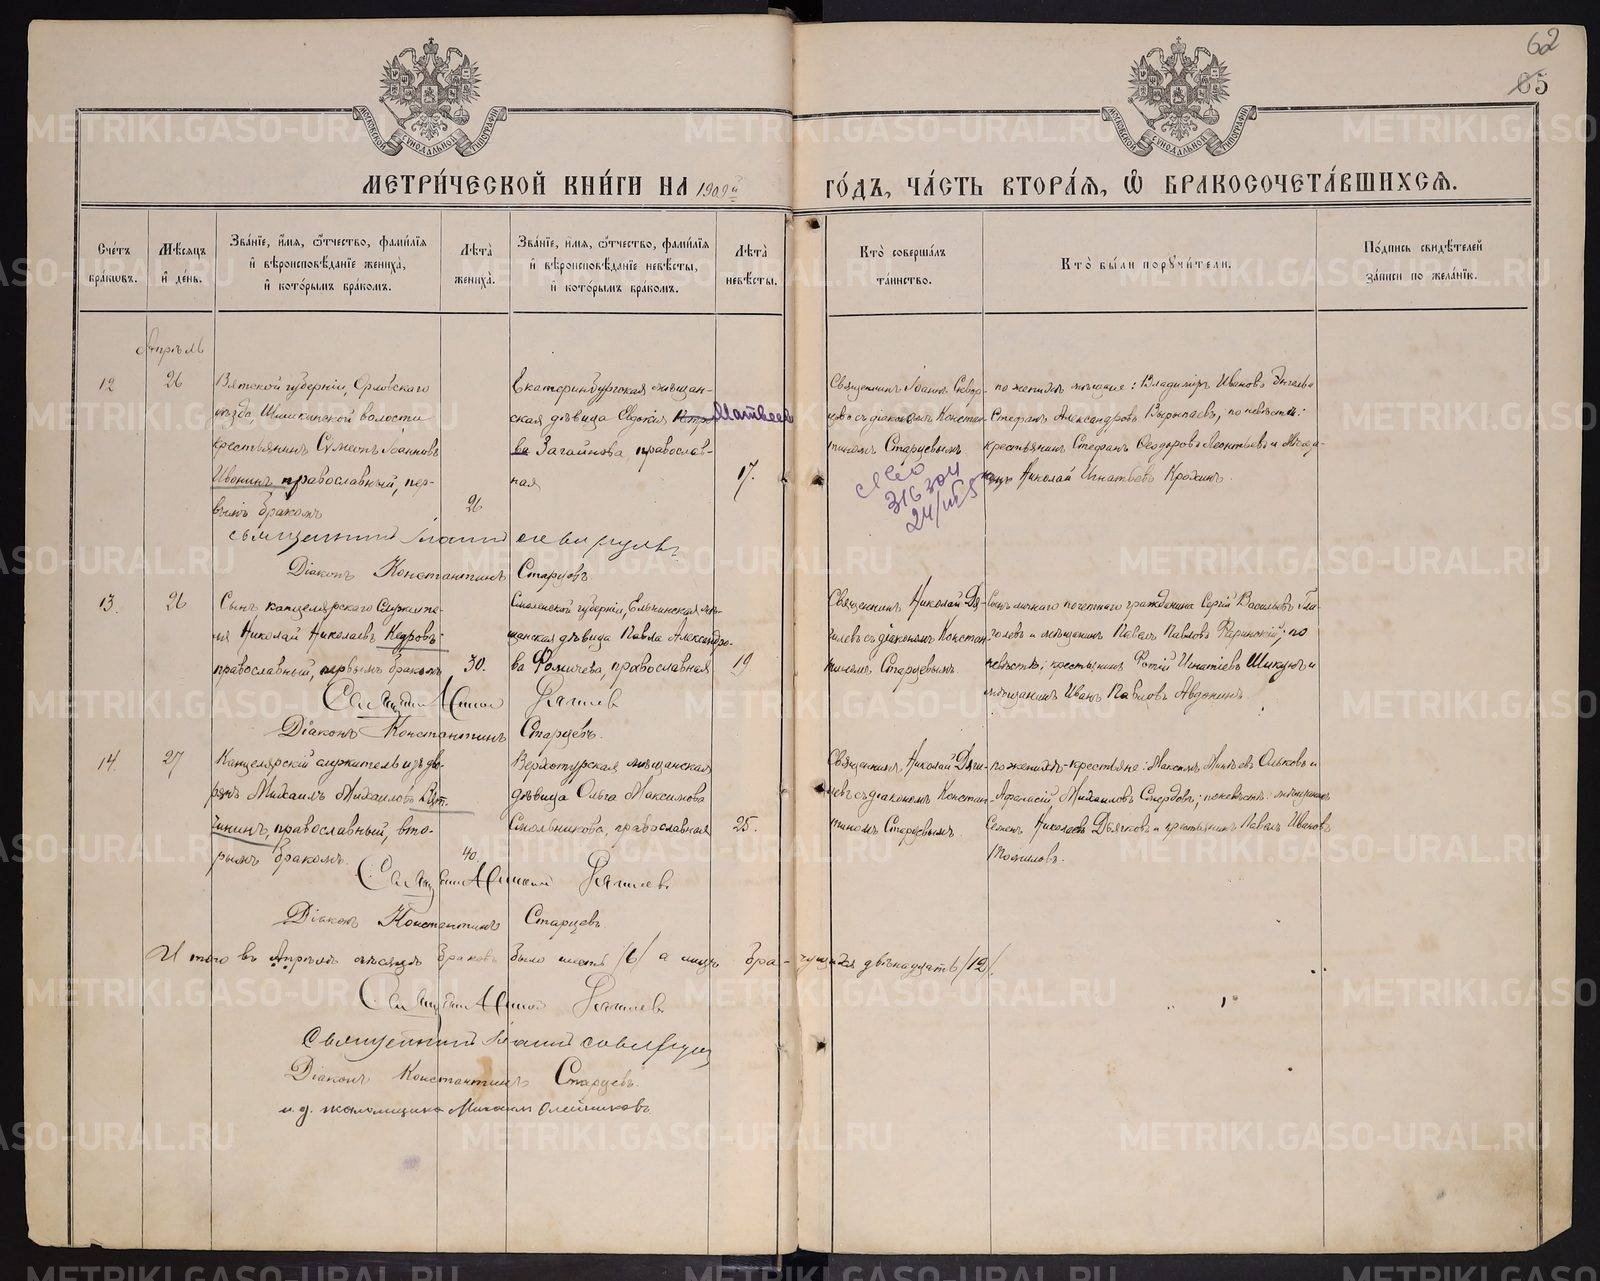 62
65
МЕТРИ́ЧЕСКОЙ КНИ́ГИ НА 1909й ГО́ДЪ, ЧА́СТЬ ВТОРА́Ѧ, Ѿ БРАКОСОЧЕТА́ВШИХСѦ.
Сче́тъ бра́кѡвъ.
Мѣ́сѧцъ и҆ де́нь.
Зва́нїе, и҆́мѧ, ѻ҆́тчество, фами́лїѧ и҆ вѣроисповѣ́данїе жениха̀, и҆ кото́рымъ бра́комъ.
Лѣ́та̀ жениха̀.
Зва́нїе, и҆́мѧ, ѻ҆́тчество, фами́лїѧ и҆ вѣроисповѣ́данїе невѣ́сты, и҆ кото́рымъ бра́комъ.
Лѣ́та̀ невѣ́сты.
Кто̀ соверша́лъ та́инство.
Кто̀ бы́ли порꙋчи́тели.
По́дпись свидѣ́телей за́писи по жела́нїю.
Апрѣль
12
26
Вятской губерніи, Орловскаго
уѣзда, Шишкинской волости
крестьянинъ Сумеонъ Іоанновъ
Ивонинъ, православный, пер-
вымъ бракомъ
26
Екатеринбургская мѣщан-
ская дѣвица Евдокія Матвеев
ва Загайнова, православ-
ная
17.
Священникъ Іоаннъ
съ діакономъ Констан-
тиномъ Старцевымъ.
316304
по женихѣ мѣщане: Владиміръ Ивановъ
Стефанъ Александровъ Вырыпаевъ, по невѣстѣ:
крестьянинъ Стефанъ Ѳеодоровъ Леонтьевъ и
Николай Игнатьевъ
Священникъ Іоаннъ
Діаконъ Константинъ Старцевъ
13.
26
Сынъ канцелярскаго служите-
ля Николай Николаевъ Кедровъ
православный, первымъ бракомъ
30.
Смоленской губерніи, Ельнинская мѣ-
щанская дѣвица Павла Александро-
ва Фомичева, православная
19
Священникъ Николай Дя-
гилевъ съ діакономъ Констан-
тиномъ Старцевымъ.
Сынъ личнаго почетнаго гражданина Сергій Васильевъ Гла-
голевъ и мѣщанинъ Павелъ Павловъ по
невѣстѣ: крестьянинъ Фотій Игнатіевъ Шикунъ и
мѣщанинъ Иванъ Павловъ Авдонинъ.
Священникъ Николай Дягилевъ
Діаконъ Константинъ Старцевъ.
14.
27
Канцелярскій служитель изъ дво-
рянъ Михаилъ Михаиловъ
православный, вто-
рымъ бракомъ.
40.
Верхотурская мѣщанская
дѣвица Ольга Максимова
Смольникова, православная
25.
Священникъ Николай Дяги-
левъ съ діакономъ Констан-
тиномъ Старцевымъ.
по женихѣ крестьяне: Максимъ
Афанасій Михаиловъ по невѣстѣ: мѣщанинъ
Семенъ Николаевъ Дьячковъ и крестьянинъ Павелъ Ивановъ
Священникъ Николай Дягилевъ
Діаконъ Константинъ Старцевъ.
Итого въ Апрѣлѣ мѣсяцѣ браковъ было шесть /6/ а лицъ бра-чущихся двѣнадцать /12/.
Священникъ Николай Дягилевъ
Священникъ Іоаннъ
Діаконъ Константинъ Старцевъ.
и.д. псаломщика Михаилъ Олейниковъ
METRIKI.GASO-URAL.RU